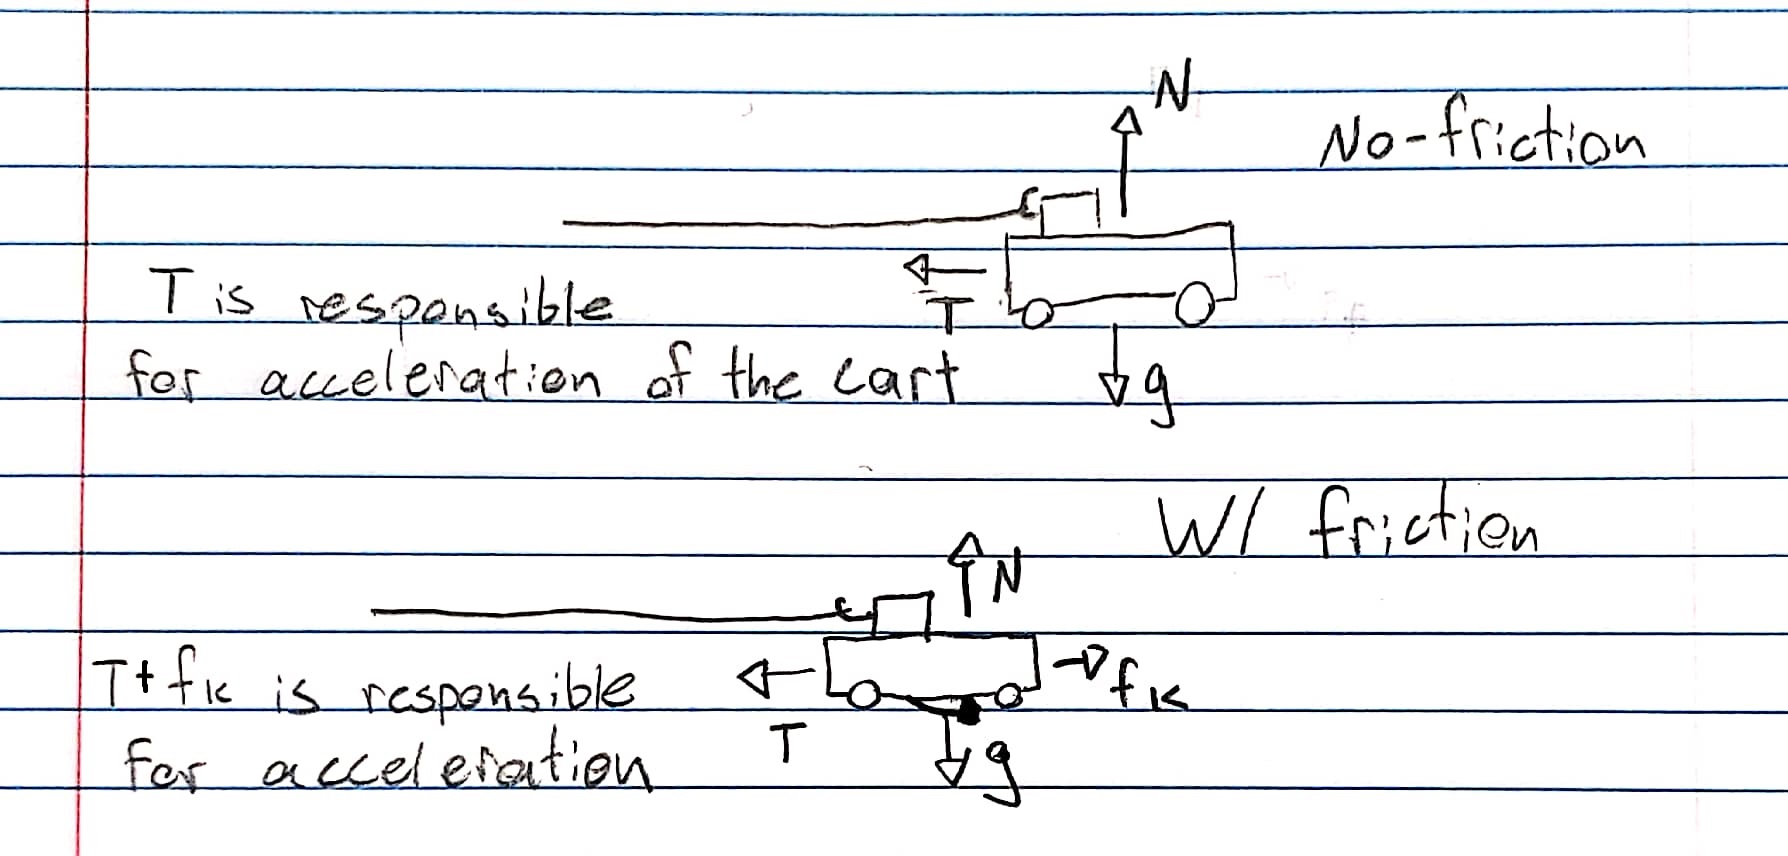 N
No-friction
T is responsible
T
for acceleration of the cart
g
W/ friction
N
T + fk is responsible
fk
T
for acceleration
g